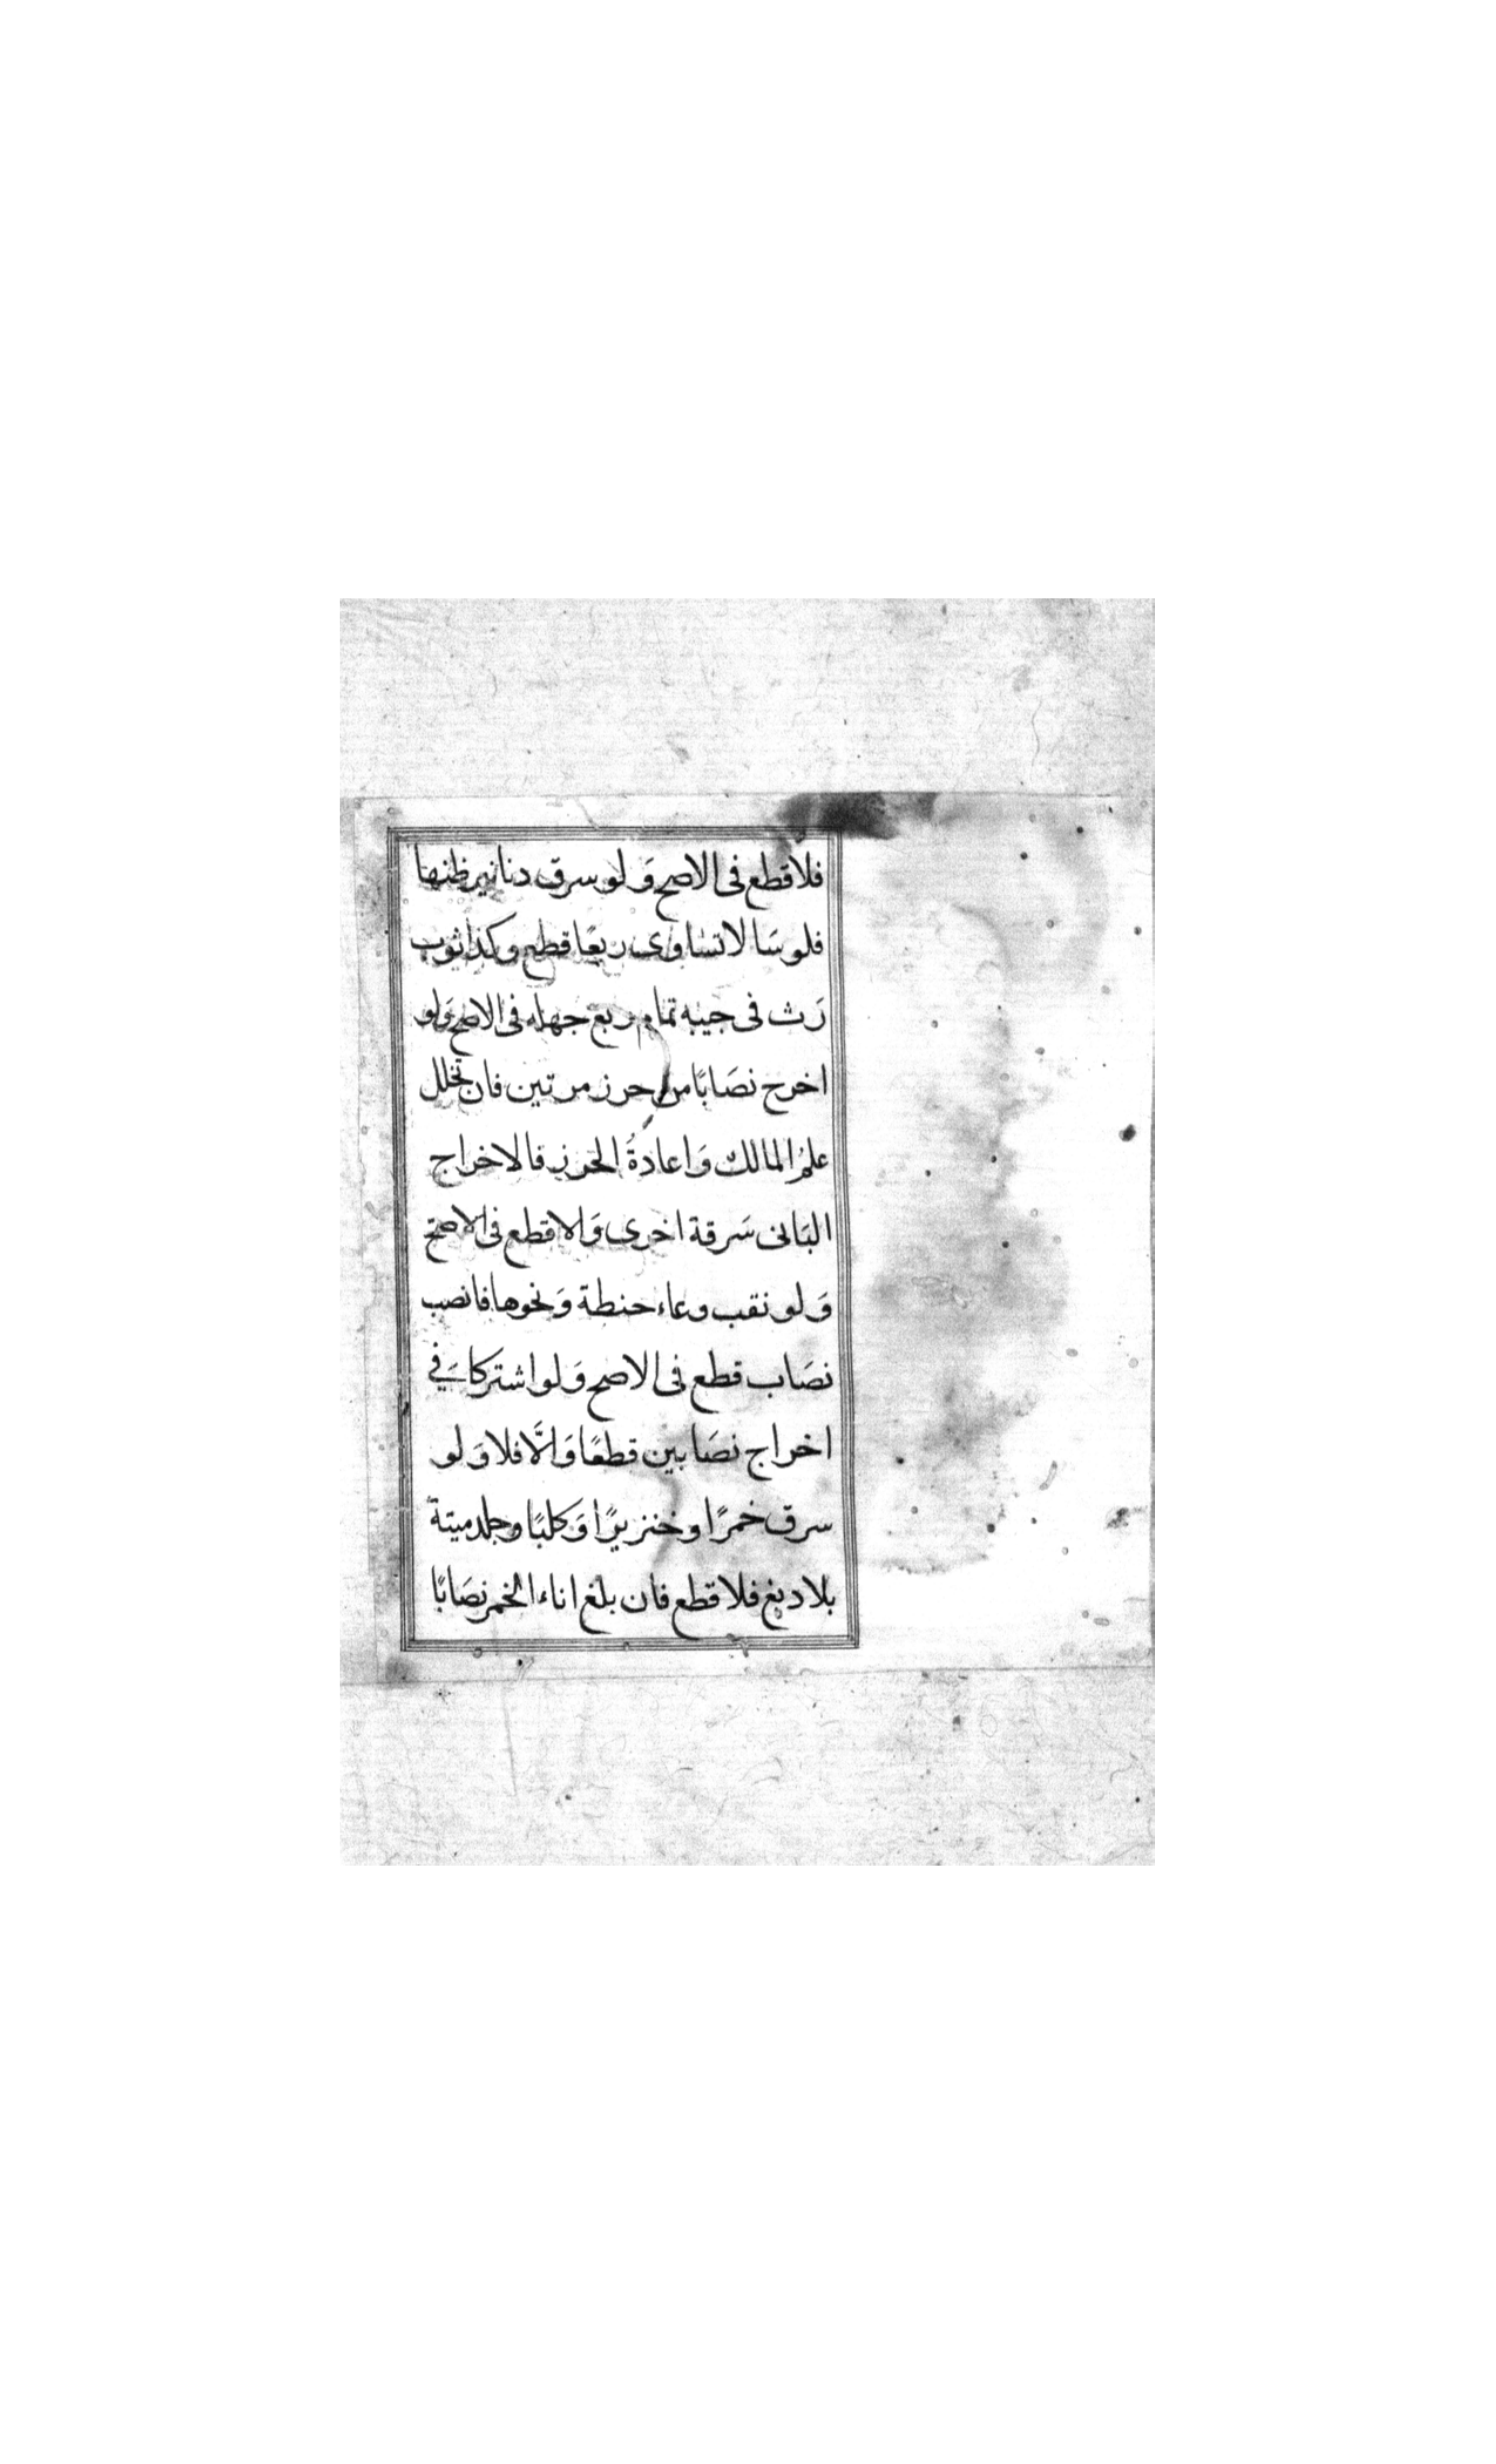 فلا قطع فى الاصح وَلو سرق دنانير ظنها
فلوسَا لا تساوى ربعًا قطع وكذا ثوب
رَث فى جيبه تمام ربع جهله فى الاصح وَلو
اخرج نصَابًا من حرز مرتين فان تخلل
علمُ المالك وَاعادةُ الحرز فالاخراج
الثانى سَرقة اخرى وَالا قطع فى الاصح
وَلو نقب وعاء حنطة وَنحوها فانصب
نصَاب قطع فى الاصح وَلو اشتركا في
اخراج نصَابين قطعًا وَالَّا فلا وَلو
سرق خمرًا وخنزيرًا وَكلبًا وجلد ميتة
بلا دبغ فلا قطع فان بلغ اناء الخمر نصَابًا